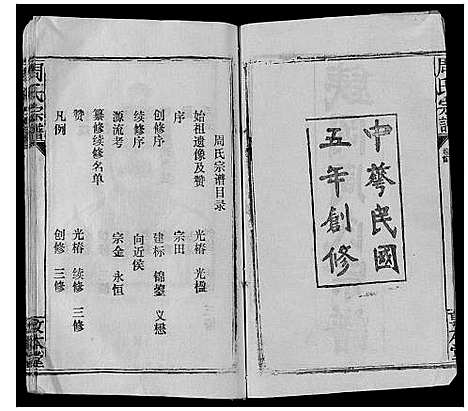 中華民國
五年創修
周氏宗譜
周氏宗谱目录
始祖遗像及赞 光椿 光楹
序 宗田
创修序 建标 锦銮 义懋
续修序 向近侯
源流考 宗金 永恒
纂修续修名单
赞 光椿 续修 三修
凡例 创修 三修
周氏宗譜